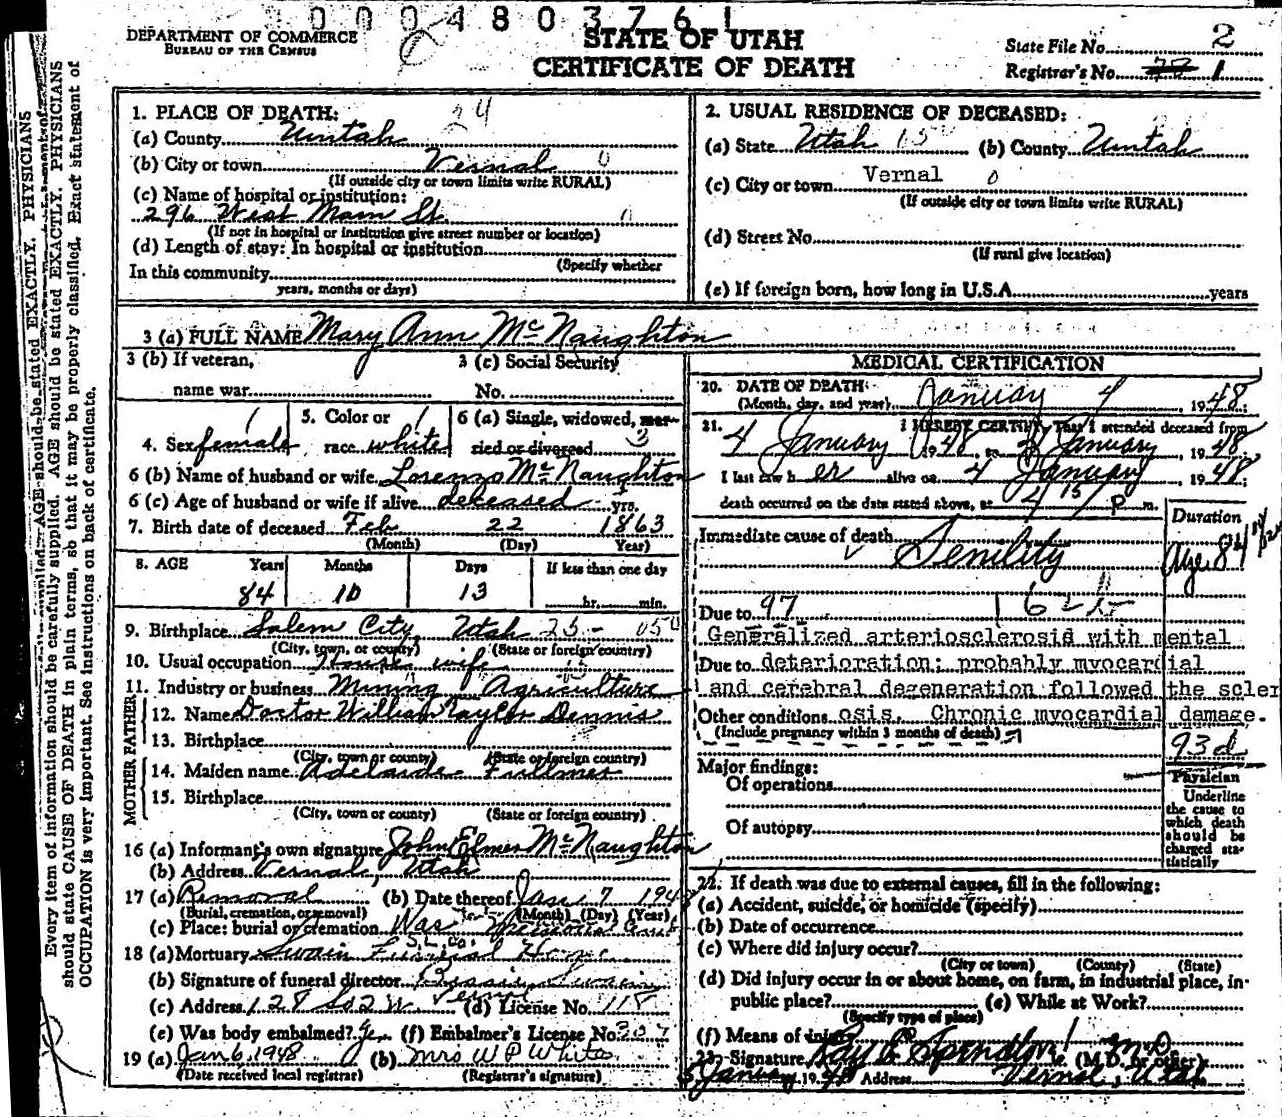 0004803761
DEPARTMENT OF COMMERCE
BUREAU OF THE CENSUS
STATE OF UTAH
CERTIFICATE OF DEATH
State File No. 2
Registrar's No. 1
Every item of information should be carefully supplied. AGE should be stated EXACTLY. PHYSICIANS
should state CAUSE OF DEATH in plain terms, so that it may be properly classified. Exact statement of
OCCUPATION is very important. See instructions on back of certificate.
1. PLACE OF DEATH: 24
(a) County Uintah
(b) City or town Vernal 0
(If outside city or town limits write RURAL)
(c) Name of hospital or institution:
296 West Main St.
(If not in hospital or institution give street number or location)
(d) Length of stay: In hospital or institution
(Specify whether
In this community
years, months or days)
2. USUAL RESIDENCE OF DECEASED:
(a) State Utah (b) County Uintah
(c) City or town Vernal 0
(If outside city or town limits write RURAL)
(d) Street No.
(If rural give location)
(e) If foreign born, how long in U.S.A. years
3 (a) FULL NAME Mary Ann McNaughton
3 (b) If veteran, 3 (c) Social Security
name war No.
4. Sex female 5. Color or race white 6 (a) Single, widowed, married or divorced 3
6 (b) Name of husband or wife Lorenzo McNaughton
6 (c) Age of husband or wife if alive deceased yrs.
7. Birth date of deceased Feb 22 1863
(Month) (Day) Year)
8. AGE Years Months Days If less than one day
84 10 13 hr. min.
9. Birthplace Salem City, Utah
(City, town, or county) (State or foreign country)
10. Usual occupation House wife
11. Industry or business Mining Agriculture
FATHER
12. Name Doctor William Taylor Dennis
13. Birthplace
(City, town or county) (State or foreign country)
MOTHER
14. Maiden name Adelaide Fullmer
15. Birthplace
(City, town or county) (State or foreign country)
16 (a) Informant's own signature John Elmer McNaughton
(b) Address Vernal, Utah
17 (a) Removal (b) Date thereof Jan 7 1948
(Burial, cremation, or removal) (Month) (Day) (Year)
(c) Place: burial or cremation
S.L.Co.
18 (a) Mortuary Swain Funeral Home
(b) Signature of funeral director
(c) Address 128 So 2 W. Vernal (d) License No. 118
(e) Was body embalmed? Yes (f) Embalmer's License No. 307
19 (a) Jan 6, 1948 (b) Mrs W P White
(Date received local registrar) (Registrar's signature)
MEDICAL CERTIFICATION
20. DATE OF DEATH:
(Month, day, and year) January 4, 1948;
21. I HEREBY CERTIFY That I attended deceased from
4 January, 1948 to January, 1948
I last saw her alive on 4 January, 1948;
death occurred on the date stated above, at P m.
Duration
Immediate cause of death Senility
Age 84
Due to 97
Generalized arteriosclerosid with mental
Due to deterioration; probably myocardial
and cerebral degeneration followed the scler
Other conditions osis. Chronic myocardial damage.
(Include pregnancy within 3 months of death)
93d
Major findings:
Of operations
Of autopsy
Physician
Underline
the cause to
which death
should be
charged sta-
tistically
22. If death was due to external causes, fill in the following:
(a) Accident, suicide, or homicide (specify)
(b) Date of occurrence
(c) Where did injury occur?
(City or town) (County) (State)
(d) Did injury occur in or about home, on farm, in industrial place, in
public place? (e) While at Work?
(Specify type of place)
(f) Means of injury
23. Signature Ray E Spendlove M.D. (M.D. or other)
5 January, 1948 Address Vernal, Utah